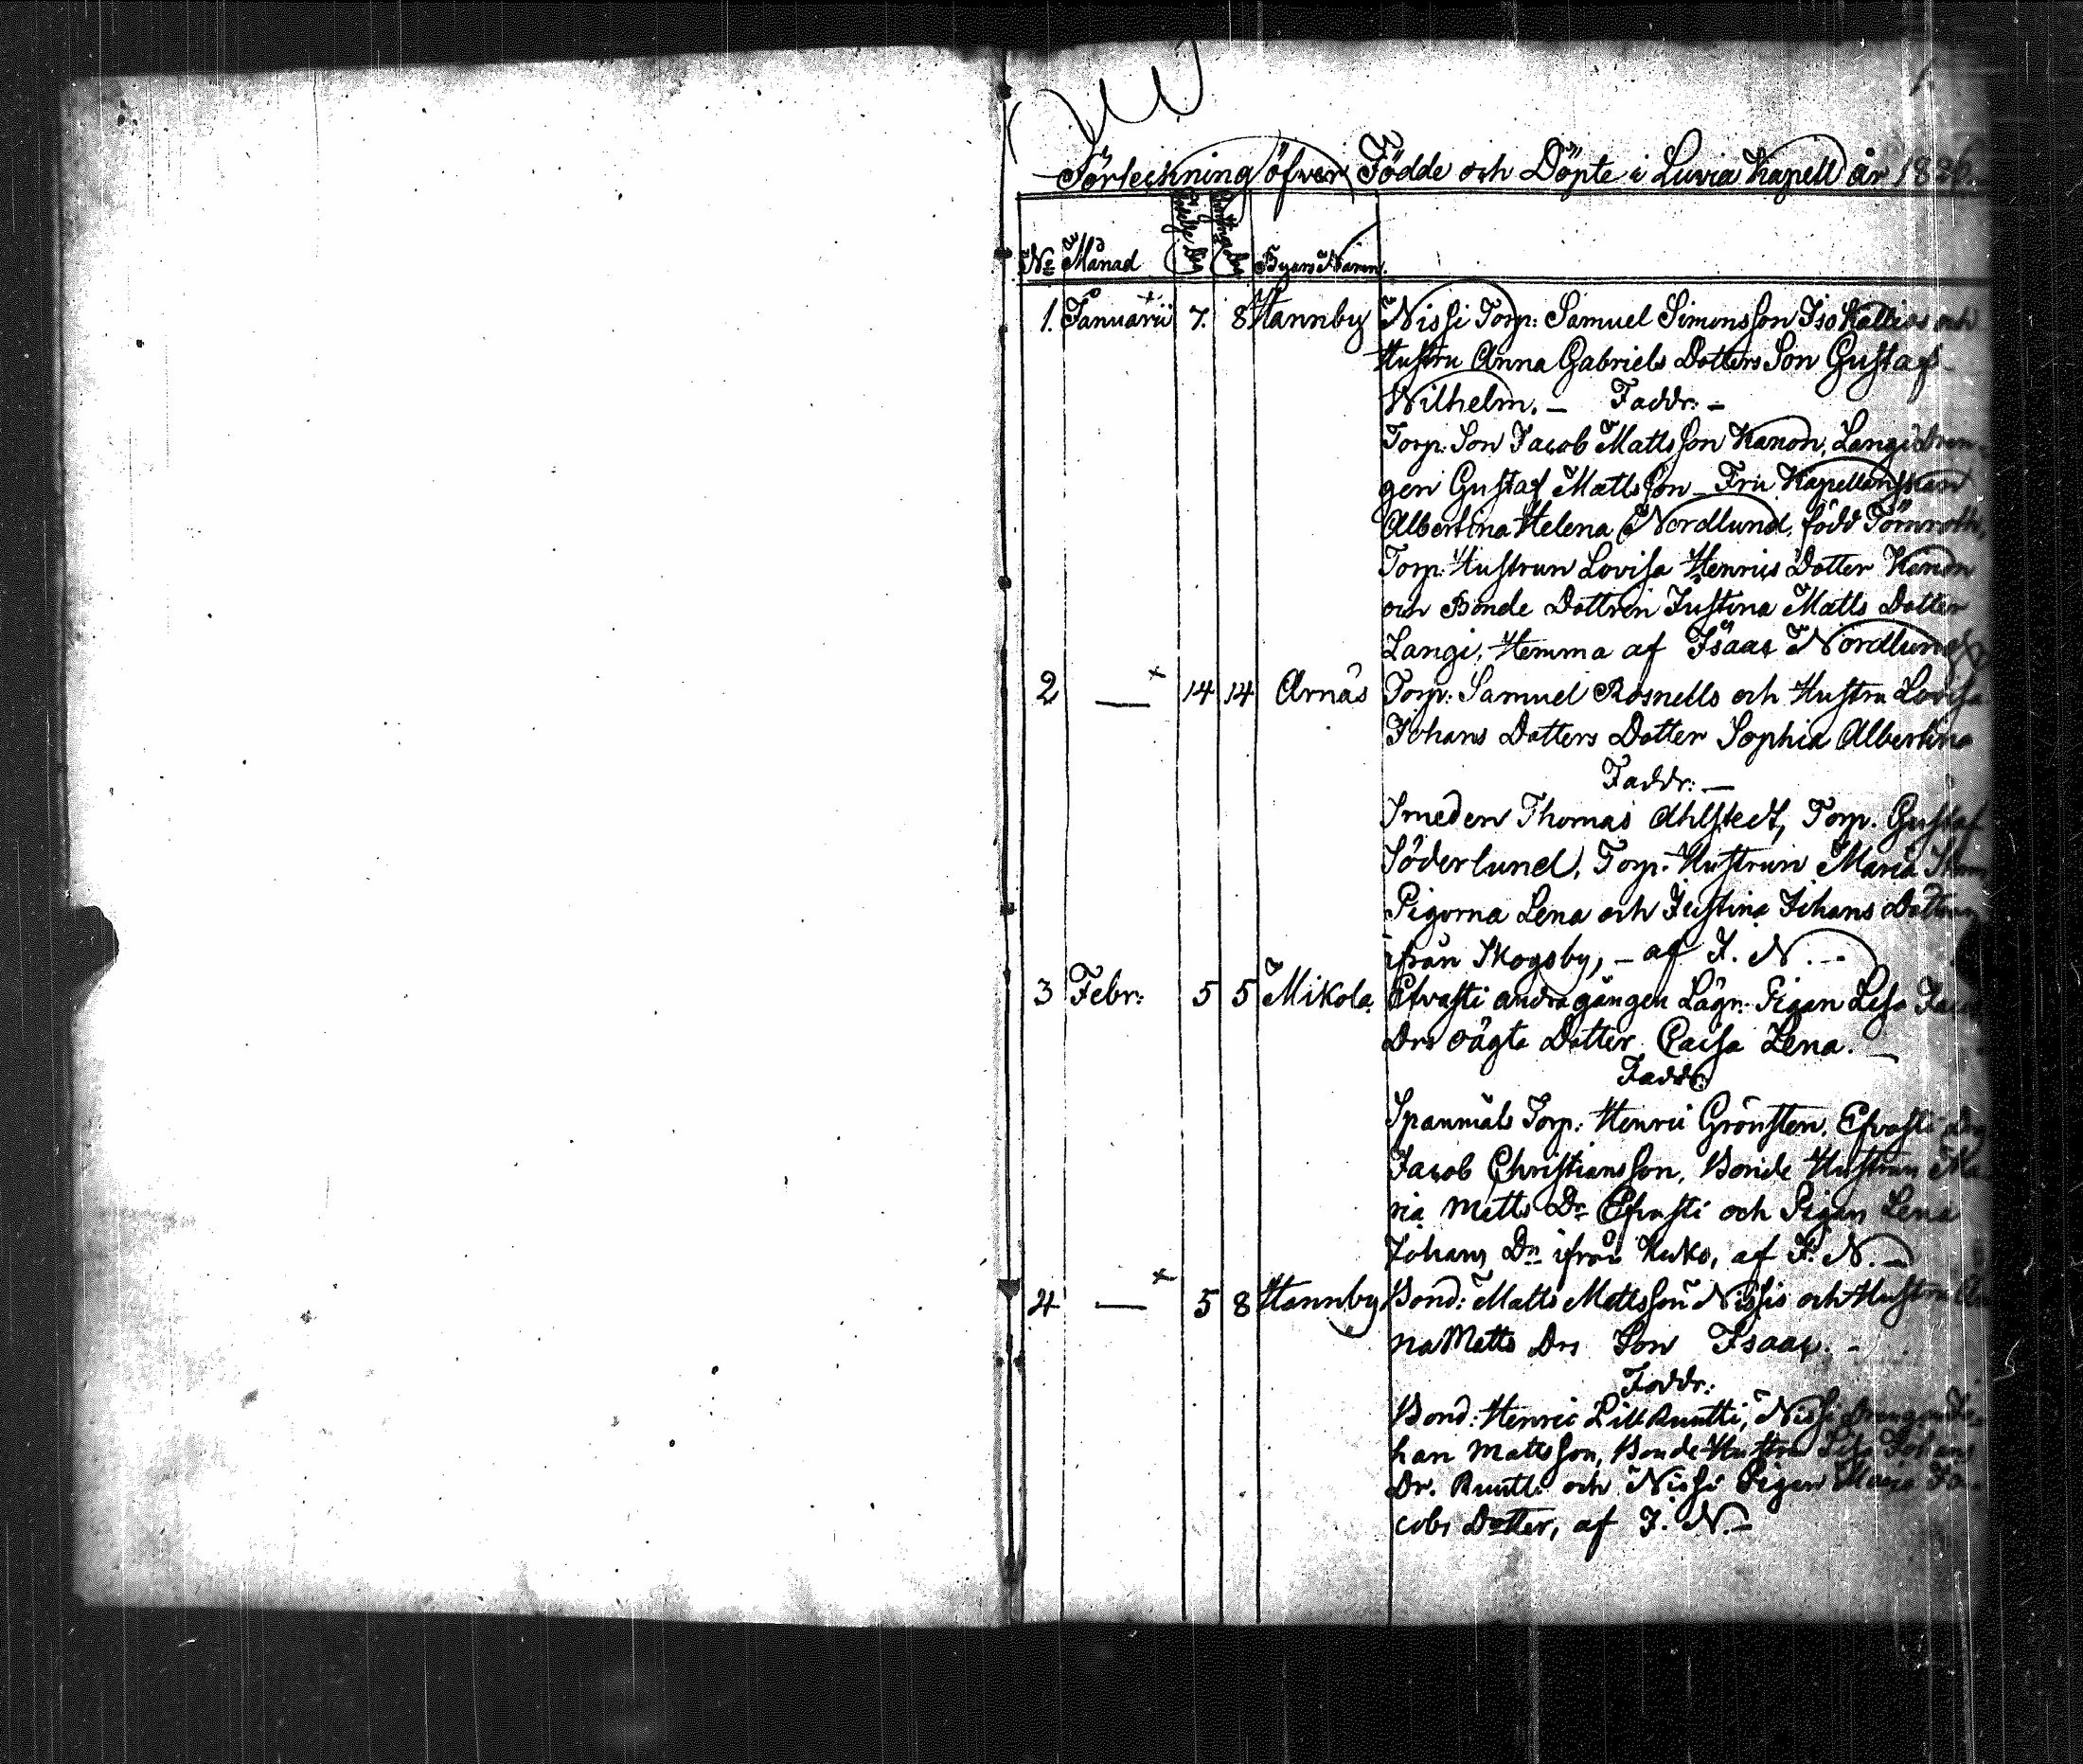 Förteckning öfver Födde och Döpte i Luvia Kapell år 1836.
No Månad Födelse Dag Döpelse Dag Byars Namn.
1. Januarii 7. 8 Hannby Nissi Torp: Samuel Simonsson Isokallios och
Hustru Anna Gabriels Dotters Son Gustaf
Wilhelm. — Faddr: —
Torp: Son Jacob Mattsson Kanon, Langi Dren-
gen Gustaf Mattsson — Fru Kapellanskan
Albertina Helena Nordlund, född Törnroth,
Torp: Hustrun Lovisa Henrics Dotter Kanon
och Bonde Dottren Justina Matts Dotter
Langi, Hemma af Isaac Nordlund
2 — 14 14 Arnäs Torp: Samuel Rosnells och Hustru Lovisa
Johans Dotters Dotter Sophia Albertina
Faddr: —
Smeden Thomas Ahlstedt, Torp. Gustaf
Söderlund, Torp: Hustrun Maria
Pigorna Lena och Justina Johans Döttrar
ifrån Skogsby, — af I. N. —
3 Febr: 5 5 Mikola. Efvasti andra gången Lägr: Pigan Lisa
Drs oägta Dotter Caisa Lena. —
Faddr:
Spanmäls Torp: Henric Grönsten, Efvasti
Jacob Christiansson, Bonde Hustrun Ma
ria Matts Dr Efvasti och Pigan Lena
Johans Dr ifrån Kuko, af I. N. —
4 — 5 8 Hannby Bond: Matts Mattsson Nissis och Hustru An
na Matts Drs Son Isaac. —
Faddr:
Bond: Henric Lill Ruutti, Nissi Drengen Jo-
han Mattsson, Bonde Hustru Lisa Johans
Dr. Ruutti och Nissi Pigan Maria Ja-
cobs Dotter, af I. N. —